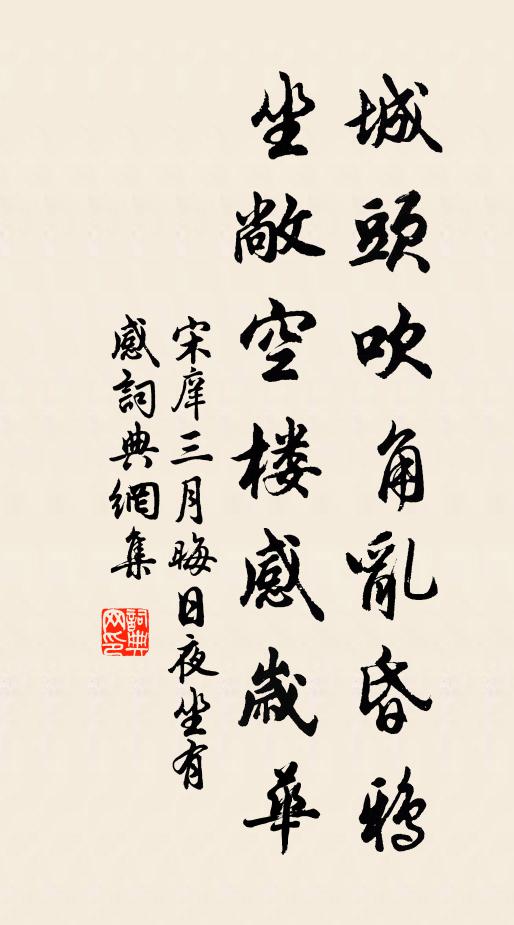 城頭吹角亂昏鴉
坐敞空楼感歲華
宋庠三月晦日夜坐有
感詞典網集
詞典
网印